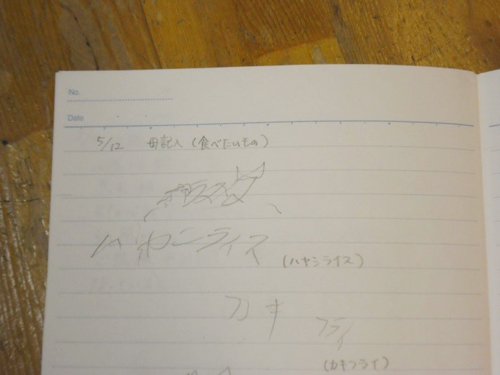 No.
Date
5/12 母記入(食べたいもの)
ライス
(ハヤシライス)
カキ
フライ
(カキフライ)